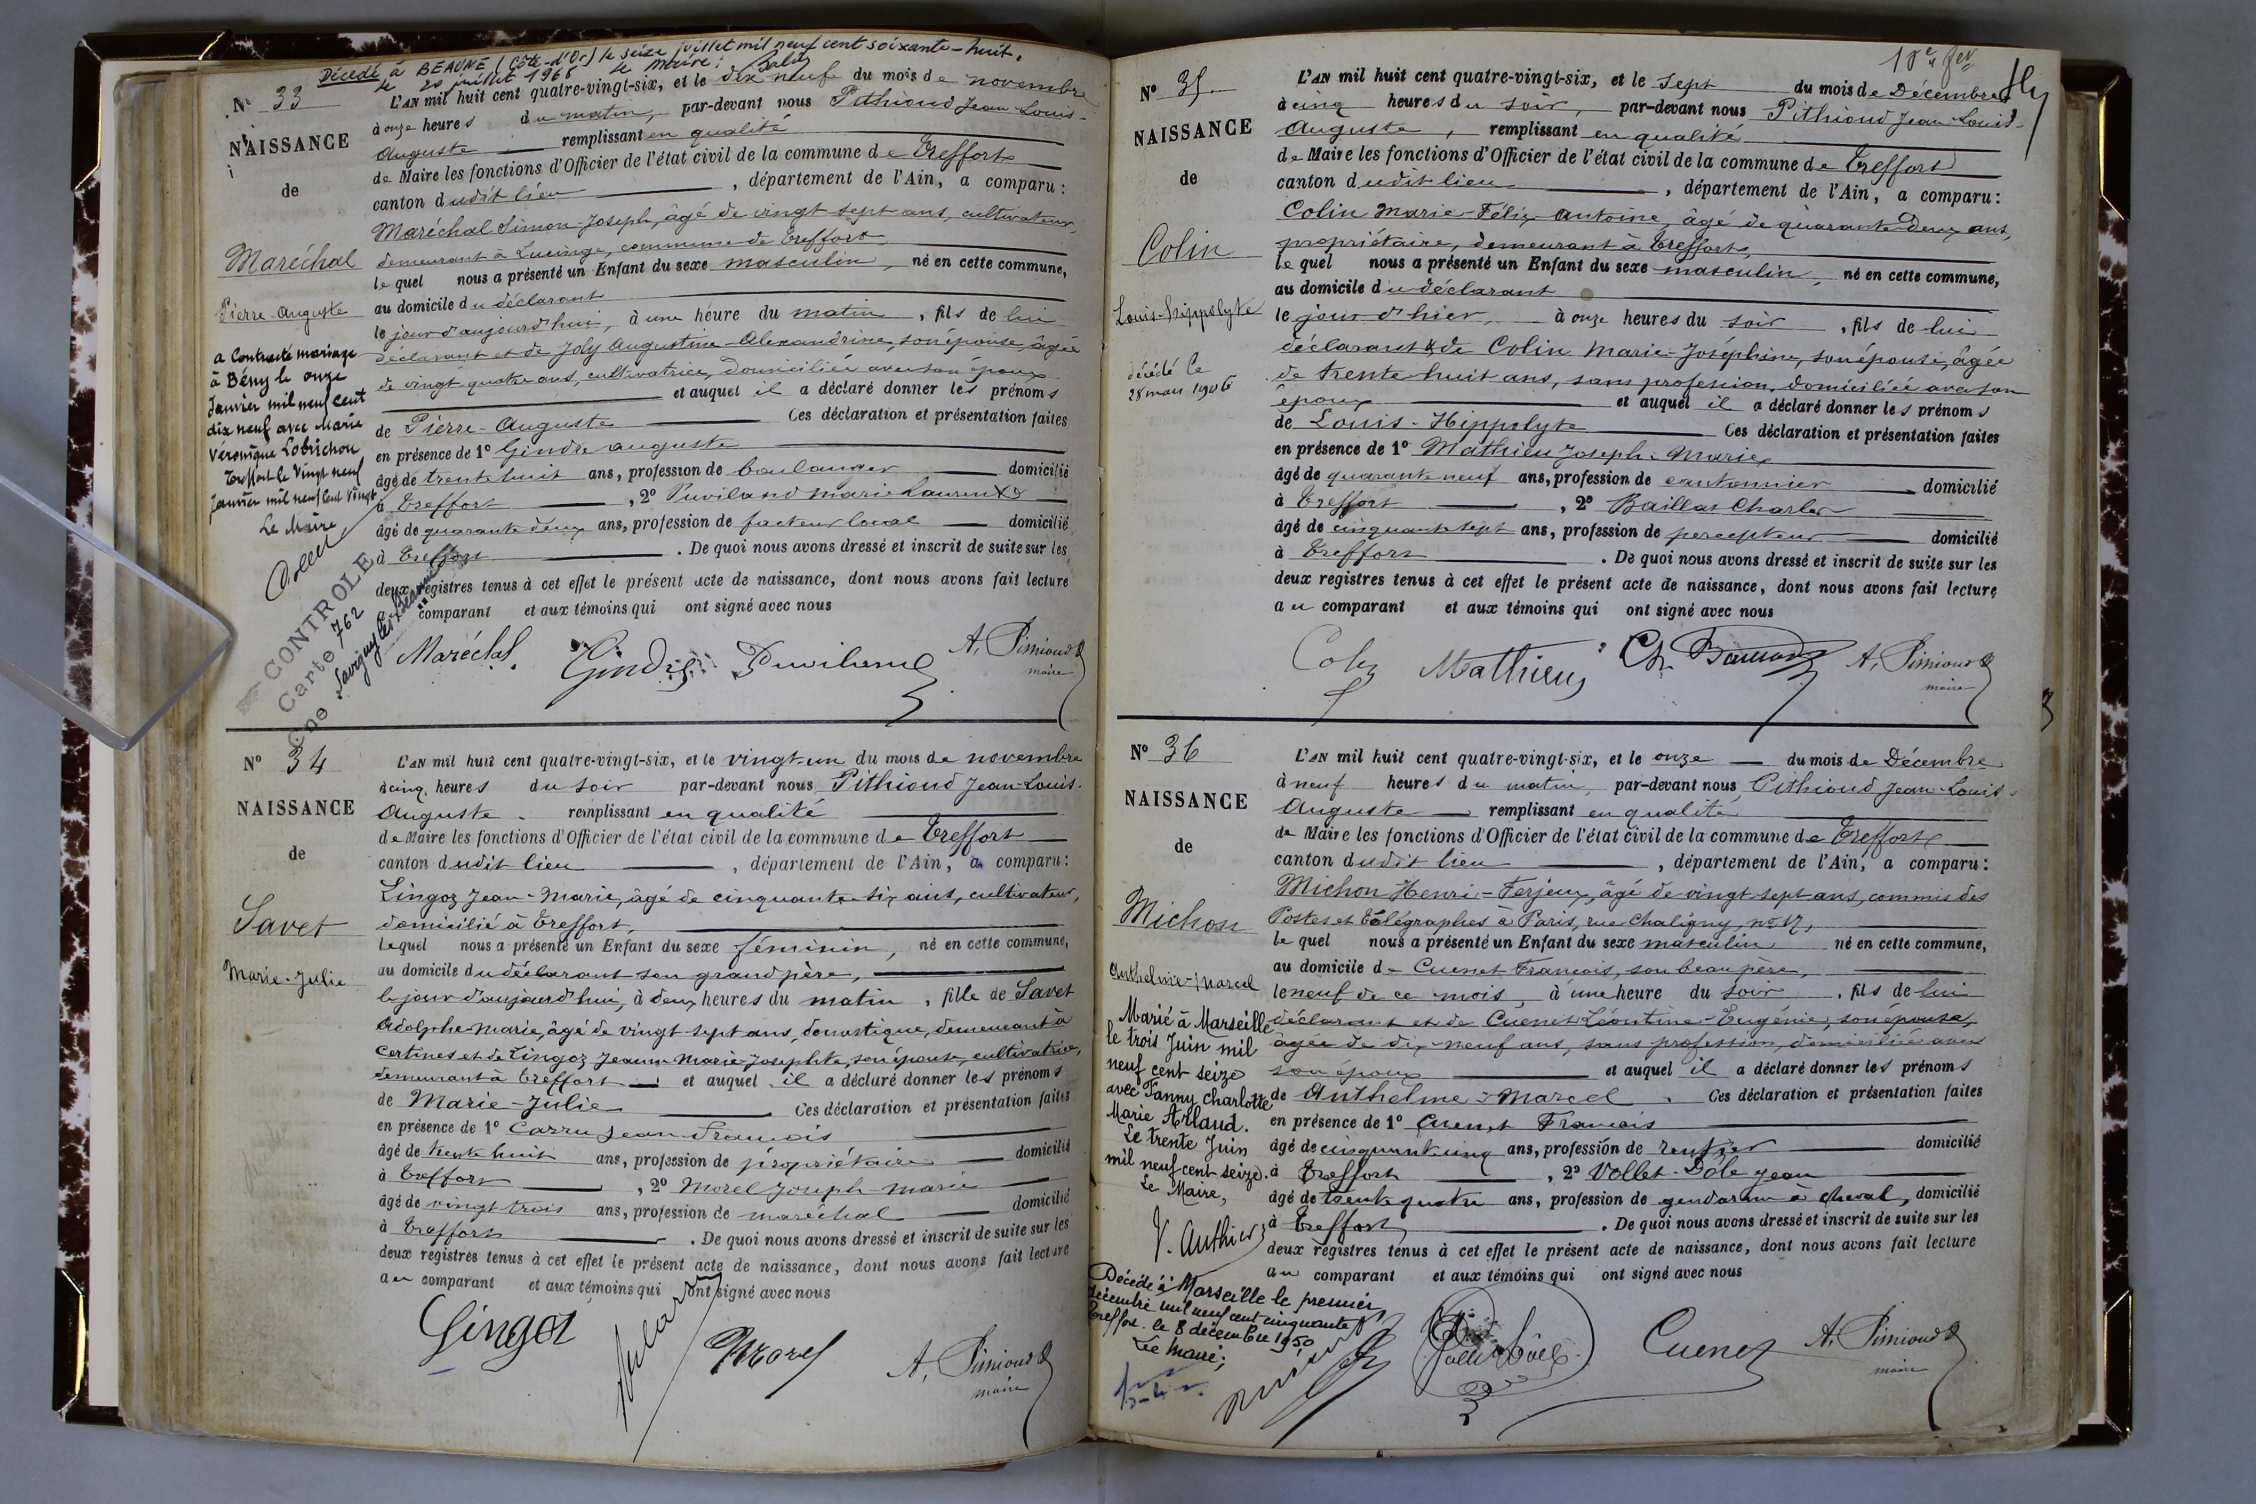 Décédé à BEAUNE (Côte-d'Or) le seize juillet mil neuf cent soixante-huit.
le 20 juillet 1968 le Maire:
N° 33
NAISSANCE
de
Maréchal
Pierre-Auguste
a Contracté mariage
à Bény le onze
Janvier mil neuf cent
dix neuf avec Marie
Véronique Lobrichon
Treffort le Vingt neuf
Janvier mil neuf cent Vingt
Le Maire
CONTROLE
Carte 762
Cne Savigny les Beaune
L'AN mil huit cent quatre-vingt-six, et le dix neuf du mois de novembre
à onze heures du matin, par-devant nous Pithioud Jean-Louis-
Auguste remplissant en qualité
de Maire les fonctions d'Officier de l'état civil de la commune de Treffort
canton dudit lieu, département de l'Ain, a comparu:
Maréchal Simon-Joseph, âgé de vingt sept ans, cultivateur,
demeurant à Lucinge, commune de Treffort
lequel nous a présenté un Enfant du sexe masculin, né en cette commune,
au domicile du déclarant
le jour d'aujourd'hui, à une heure du matin, fils de lui
déclarant et de Joly Augustine-Alexandrine, son épouse, âgée
de vingt quatre ans, cultivatrice, domiciliée avec son époux
et auquel il a déclaré donner les prénoms
de Pierre-Auguste Ces déclaration et présentation faites
en présence de 1° Gindre auguste
âgé de trente huit ans, profession de boulanger domicilié
à Treffort, 2° Puviland marie Laurent
âgé de quarante deux ans, profession de facteur local domicilié
à Treffort. De quoi nous avons dressé et inscrit de suite sur les
deux registres tenus à cet effet le présent acte de naissance, dont nous avons fait lecture
au comparant et aux témoins qui ont signé avec nous
Maréchal. Gindre Puviland A, Pithioud
maire
N° 34
NAISSANCE
de
Savet
Marie-Julie
L'AN mil huit cent quatre-vingt-six, et le vingt-un du mois de novembre
à cinq heures du soir par-devant nous Pithioud Jean-Louis-
Auguste remplissant en qualité
de Maire les fonctions d'Officier de l'état civil de la commune de Treffort
canton dudit lieu, département de l'Ain, a comparu:
Lingoz Jean-Marie, âgé de cinquante six ans, cultivateur,
domicilié à Treffort,
lequel nous a présenté un Enfant du sexe féminin, né en cette commune,
au domicile du déclarant son grand père,
le jour d'aujourd'hui, à deux heures du matin, fille de Savet
Adolphe-Marie, âgé de vingt sept ans, domestique, demeurant à
Certines et de Lingoz Jeanne Marie Josephte, son épouse, cultivatrice,
demeurant à Treffort et auquel il a déclaré donner les prénoms
de Marie-Julie Ces déclaration et présentation faites
en présence de 1° Carru Jean François
âgé de trente huit ans, profession de propriétaire domicilié
à Treffort, 2° Morel Joseph marie
âgé de vingt trois ans, profession de maréchal domicilié
à Treffort. De quoi nous avons dressé et inscrit de suite sur les
deux registres tenus à cet effet le présent acte de naissance, dont nous avons fait lecture
au comparant et aux témoins qui ont signé avec nous
Morel A, Pithioud
maire
N° 35
NAISSANCE
de
Colin
Louis-Hippolyte
décédé le
28 mars 1906
L'AN mil huit cent quatre-vingt-six, et le sept du mois de Décembre
à cinq heures du soir, par-devant nous Pithioud Jean Louis-
Auguste, remplissant en qualité
de Maire les fonctions d'Officier de l'état civil de la commune de Treffort
canton dudit lieu, département de l'Ain, a comparu:
Colin Marie-Félix-Antoine, âgé de quarante-Deux ans,
propriétaire, demeurant à Treffort,
lequel nous a présenté un Enfant du sexe masculin, né en cette commune,
au domicile du déclarant
le jour d'hier, à onze heures du soir, fils de lui
déclarant & de Colin Marie-Joséphine, son épouse, âgée
de trente-huit ans, sans profession, domiciliée avec son
époux et auquel il a déclaré donner les prénoms
de Louis-Hippolyte Ces déclaration et présentation faites
en présence de 1° Mathieu Joseph-Marie
âgé de quarante neuf ans, profession de cantonnier domicilié
à Treffort, 2° Baillat Charles
âgé de cinquante sept ans, profession de percepteur domicilié
à Treffort. De quoi nous avons dressé et inscrit de suite sur les
deux registres tenus à cet effet le présent acte de naissance, dont nous avons fait lecture
au comparant et aux témoins qui ont signé avec nous
Colin Mathieu A, Pithioud
maire
N° 36
NAISSANCE
de
Michon
Anthelme-Marcel
Marié à Marseille
le trois Juin mil
neuf cent seize
avec Fanny Charlotte
Marie Arlaud.
Le trente Juin
mil neuf cent seize.
Le Maire,
V. Authier
Décédé à Marseille le premier
décembre mil neuf cent cinquante
Treffort le 8 décembre 1950
Le Maire;
L'AN mil huit cent quatre-vingt-six, et le onze du mois de Décembre
à neuf heures du matin, par-devant nous Pithioud Jean-Louis-
Auguste remplissant en qualité
de Maire les fonctions d'Officier de l'état civil de la commune de Treffort
canton dudit lieu, département de l'Ain, a comparu:
Michon Henri-Ferjeux, âgé de vingt sept ans, commis des
Postes et Télégraphes à Paris, rue Chaligny, no 17,
lequel nous a présenté un Enfant du sexe masculin né en cette commune,
au domicile de Cuenet François, son beau père,
le neuf de ce mois, à une heure du soir, fils de lui
déclarant et de Cuenet Léontine-Eugénie, son épouse,
âgée de dix-neuf ans, sans profession, domiciliée avec
son époux et auquel il a déclaré donner les prénoms
de Anthelme-Marcel. Ces déclaration et présentation faites
en présence de 1° Cuenet François
âgé de cinquante cinq ans, profession de rentier domicilié
à Treffort, 2° Vollet-Dôle Jean
âgé de trente quatre ans, profession de gendarme à cheval, domicilié
à Treffort. De quoi nous avons dressé et inscrit de suite sur les
deux registres tenus à cet effet le présent acte de naissance, dont nous avons fait lecture
au comparant et aux témoins qui ont signé avec nous
Cuenet A, Pithioud
maire